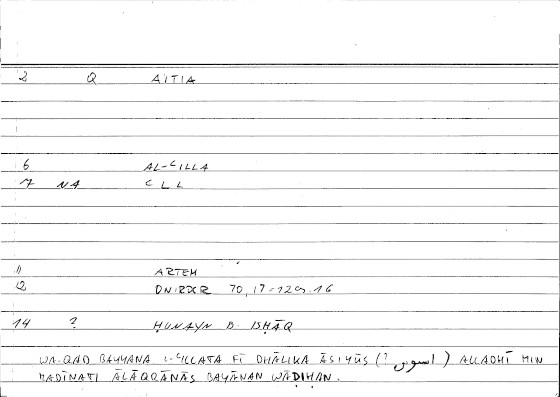 2 Q AITIA
6 AL-ʿILLA
7 NA ʿLL
11 ARTEM
12 ONIRXR 70, 17 = 129. 16
14 ? ḤUNAYN B. ISḤĀQ
WA-QAD BAYYANA L-ʿILLATA FĪ DHĀLIKA ĀSIYŪS (? اسوس) ALLADHĪ MIN
MADĪNATI ĀLĀQRĀNĀS BAYĀNAN WĀḌIḤAN.